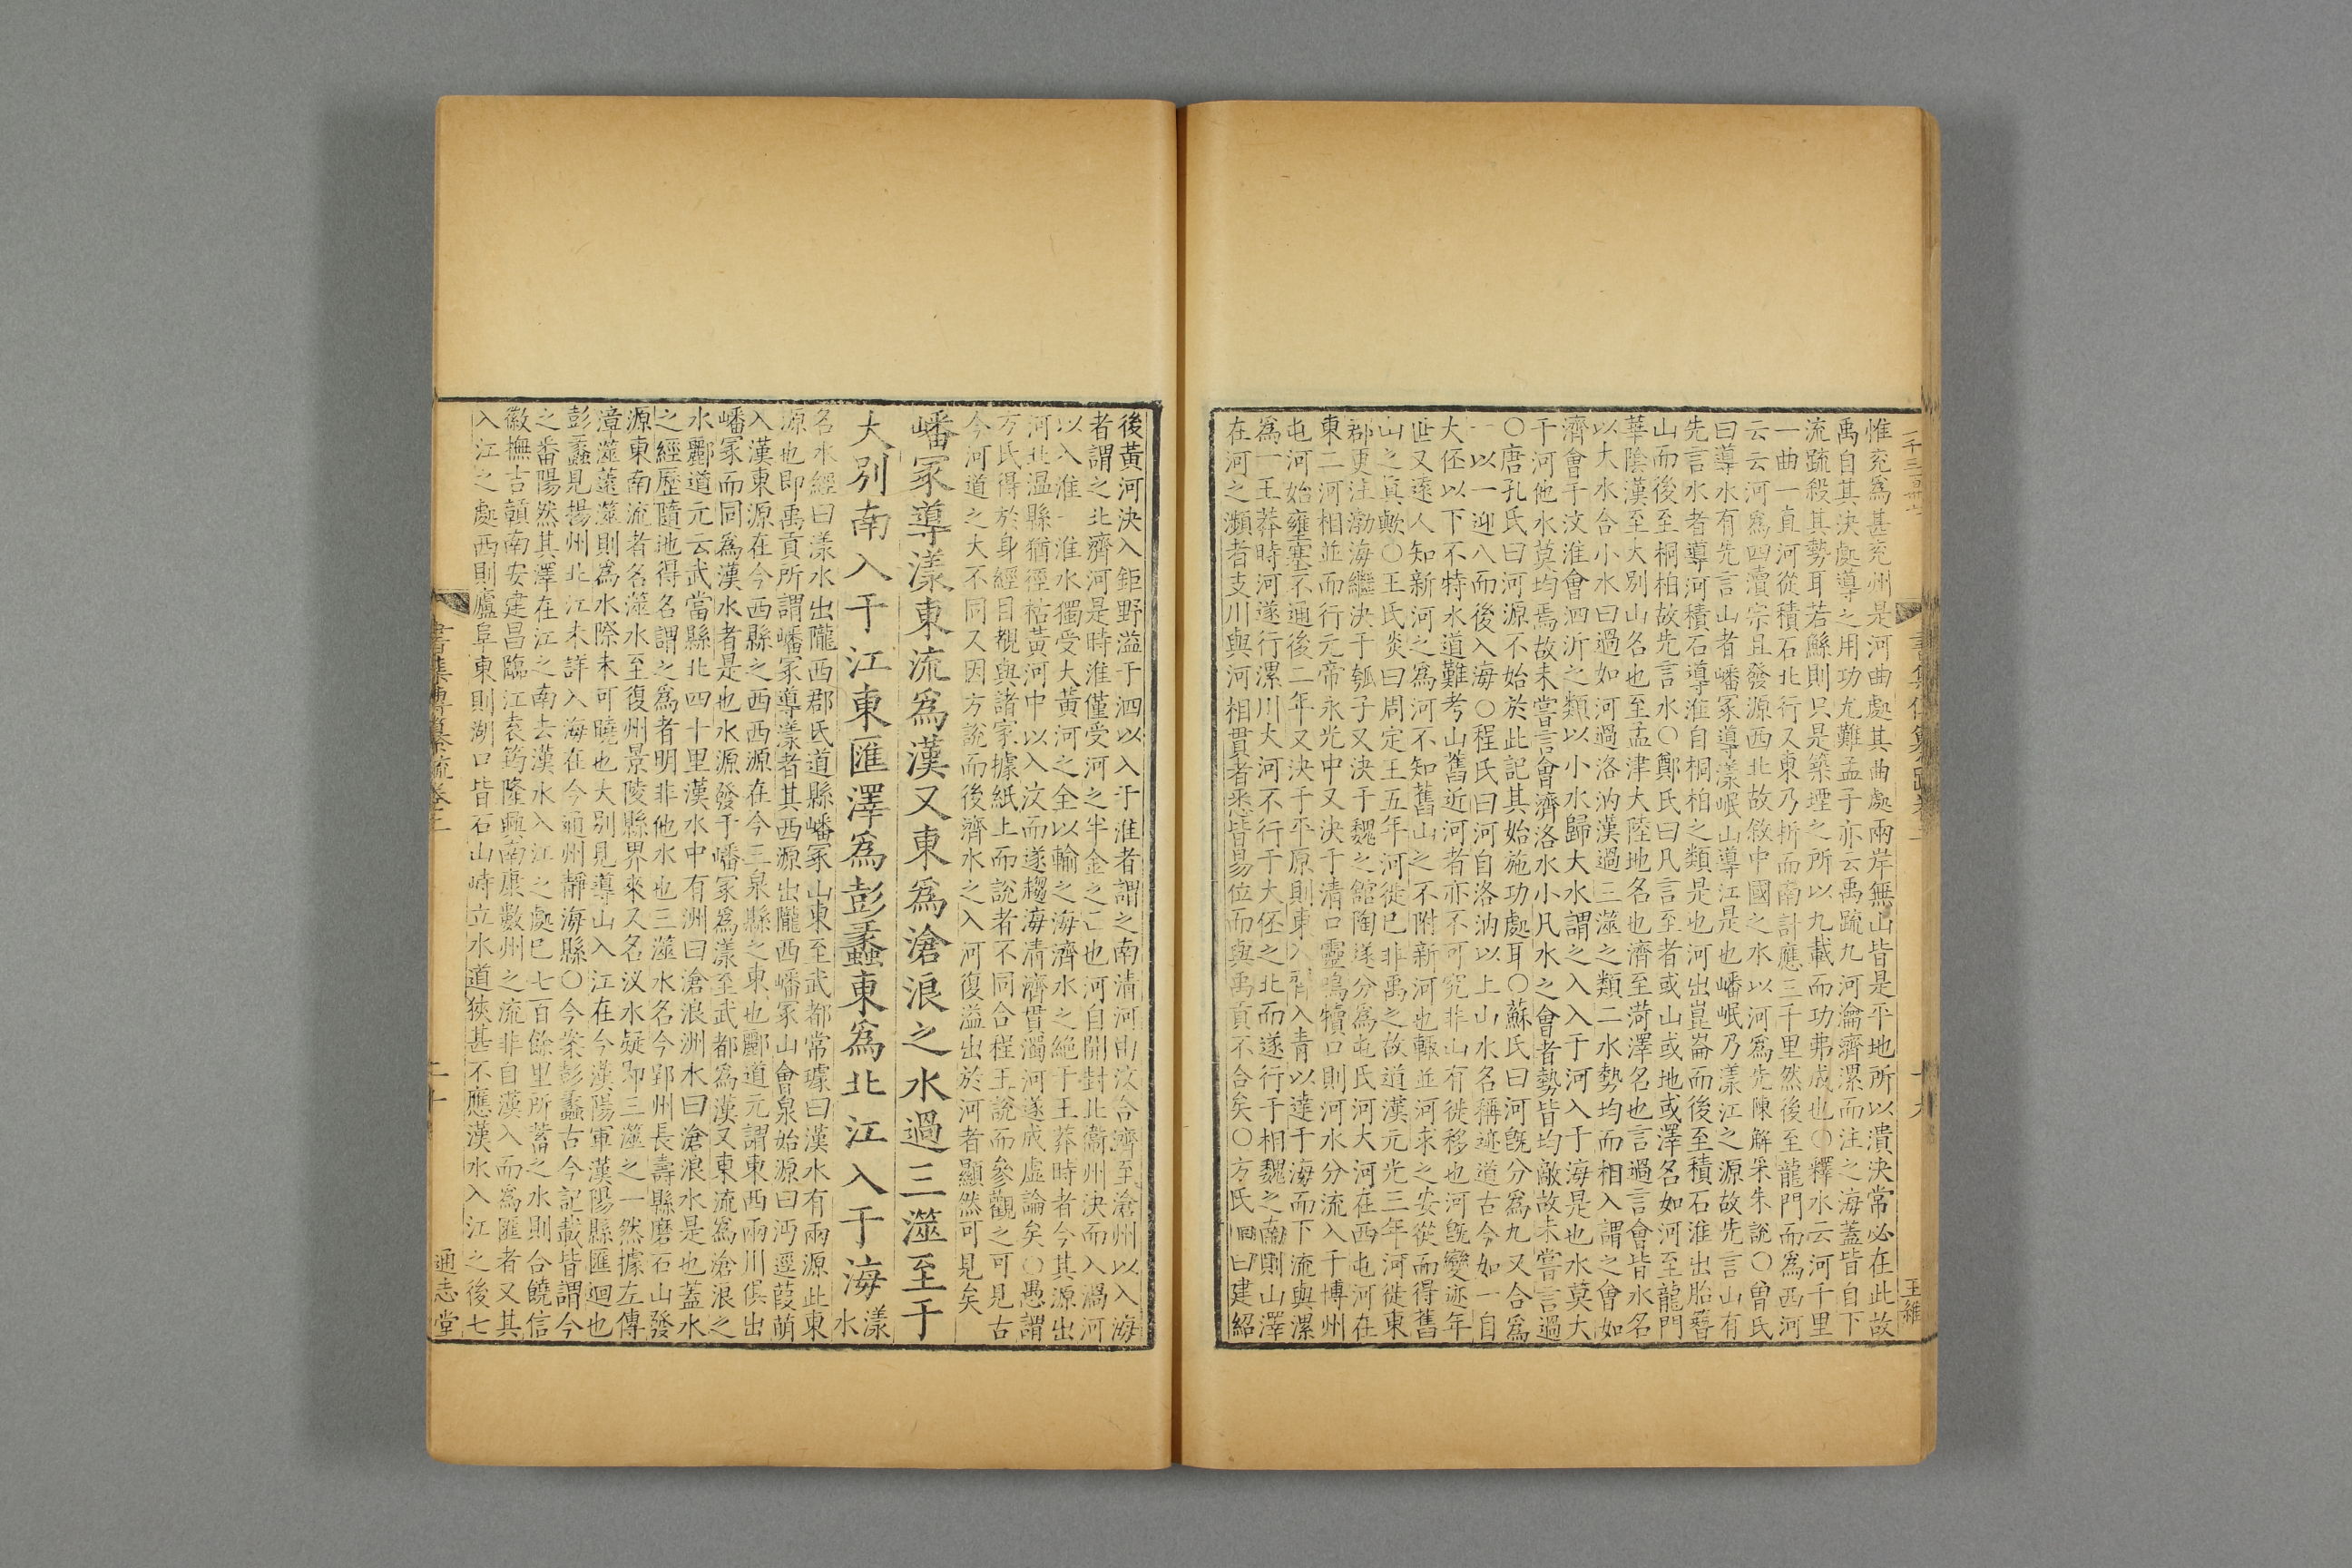 惟兖爲甚兖州是河曲處其曲處兩岸無山皆是平地所以潰決常必在此故
禹自其決處導之用功尤難孟子亦云禹疏九河瀹濟漯而注之海蓋皆自下
流疏殺其勢耳若鯀則只是築堙之所以九載而功弗成也○釋水云河千里
一曲一直河從積石北行又東乃折而南計應三千里然後至龍門而爲西河
云云河爲四瀆宗且發源西北故敘中國之水以河爲先陳解采朱說○曾氏
曰導水有先言山者嶓冢導漾岷山導江是也嶓岷乃漾江之源故先言山有
先言水者導河積石導淮自桐柏之類是也河出崑崙而後至積石淮出胎簪
山而後至桐柏故先言水○鄭氏曰凡言至者或山或地或澤名如河至龍門
華陰漢至大別山名也至孟津大陸地名也濟至菏澤名也言過言會皆水名
以大水合小水曰過如河過洛汭漢過三澨之類二水勢均而相入謂之會如
濟會于汶淮會泗沂之類以小水歸大水謂之入入于河入于海是也水莫大
于河他水莫均焉故未嘗言會濟洛水小凡水之會者勢皆均敵故未嘗言過
○唐孔氏曰河源不始於此記其始施功處耳○蘇氏曰河旣分爲九又合爲
一以一迎八而後入海○程氏曰河自洛汭以上山水名稱迹道古今如一自
大伾以下不特水道難考山舊近河者亦不可究非山有徙移也河旣變迹年
世又遠人知新河之爲河不知舊山之不附新河也輒並河求之安從而得舊
山之眞歟○王氏炎曰周定王五年河徙已非禹之故道漢元光三年河徙東
郡更注渤海繼決于瓠子又決于魏之館陶遂分爲屯氏河大河在西屯河在
東二河相並而行元帝永光中又決于清口靈鳴犢口則河水分流入于博州
屯河始壅塞不通後二年又決于平原則東入齊入青以達于海而下流與漯
爲一王莽時河遂行漯川大河不行于大伾之北而遂行于相魏之南則山澤
在河之瀕者支川與河相貫者悉皆易位而與禹貢不合矣○方氏回曰建紹
王維
後黃河決入鉅野溢于泗以入于淮者謂之南清河由汶合濟至滄州以入海
者謂之北濟河是時淮僅受河之半金之亡也河自開封北衞州決而入渦河
以入淮一淮水獨受大黃河之全以輸之海濟水之絕于王莽時者今其源出
河北温縣猶徑枯黃河中以入汶而遂趨海清濟貫濁河遂成虛論矣○愚謂
方氏得於身經目覩與諸家據紙上而說者不同合程王說而參觀之可見古
今河道之大不同又因方說而後濟水之入河復溢出於河者顯然可見矣
嶓冢導漾東流爲漢又東爲滄浪之水過三澨至于
大別南入于江東匯澤爲彭蠡東爲北江入于海漾水
名水經曰漾水出隴西郡氐道縣嶓冢山東至武都常璩曰漢水有兩源此東
源也即禹貢所謂嶓冢導漾者其西源出隴西嶓冢山會泉始源曰沔逕葭萌
入漢東源在今西縣之西西源在今三泉縣之東也酈道元謂東西兩川俱出
嶓冢而同爲漢水者是也水源發于嶓冢爲漾至武都爲漢又東流爲滄浪之
水酈道元云武當縣北四十里漢水中有洲曰滄浪洲水曰滄浪水是也蓋水
之經歷隨地得名謂之爲者明非他水也三澨水名今郢州長壽縣磨石山發
源東南流者名澨水至復州景陵縣界來又名汊水疑卽三澨之一然據左傳
漳澨薳澨則爲水際未可曉也大別見導山入江在今漢陽軍漢陽縣匯迴也
彭蠡見揚州北江未詳入海在今通州靜海縣○今案彭蠡古今記載皆謂今
之番陽然其澤在江之南去漢水入江之處已七百餘里所蓄之水則合饒信
徽撫吉贛南安建昌臨江袁筠隆興南康數州之流非自漢入而爲匯者又其
入江之處西則廬阜東則湖口皆石山峙立水道狹甚不應漢水入江之後七
書集傳纂疏卷二
二十
通志堂